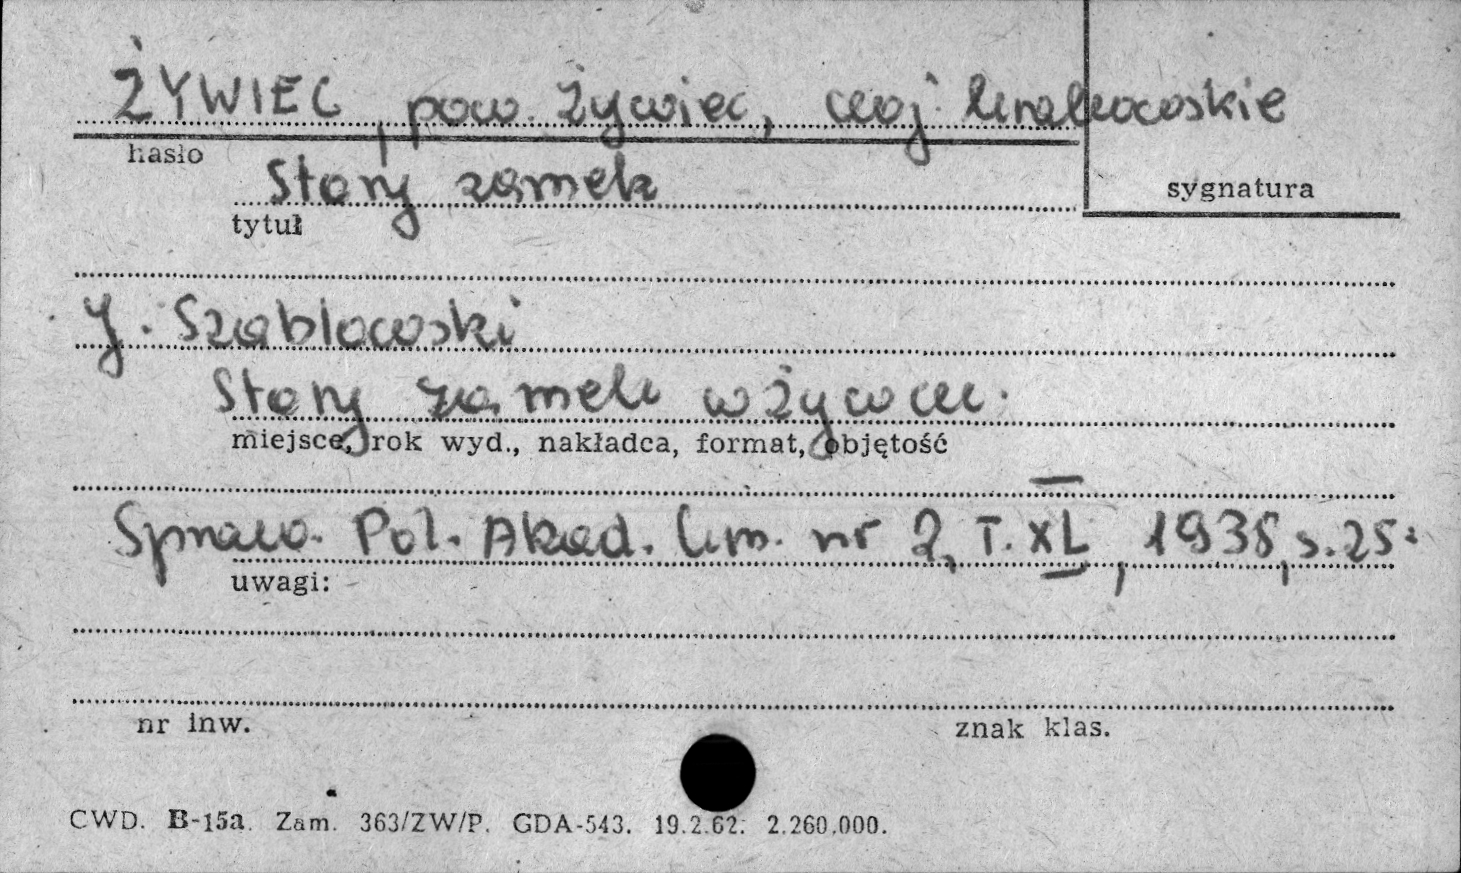 ŻYWIEC, pow. Żywiec, woj. krakowskie
hasło
sygnatura
Stary zamek
tytuł
J. Szablowski
Stary zamek w Żywcu.
miejsce, rok wyd., nakładca, format, objętość
Spraw. Pol. Akad. Um. nr 2, T. XL, 1935, s. 25:
uwagi:
nr inw.
znak klas.
CWD. B-15a. Zam. 363/ZW/P. GDA-543. 19.2.62. 2.260.000.